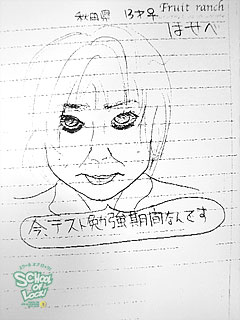 秋田県 13才♀
Fruit ranch
はせべ
今、テスト勉強期間なんです
SCHOOL
OF
LOCK!